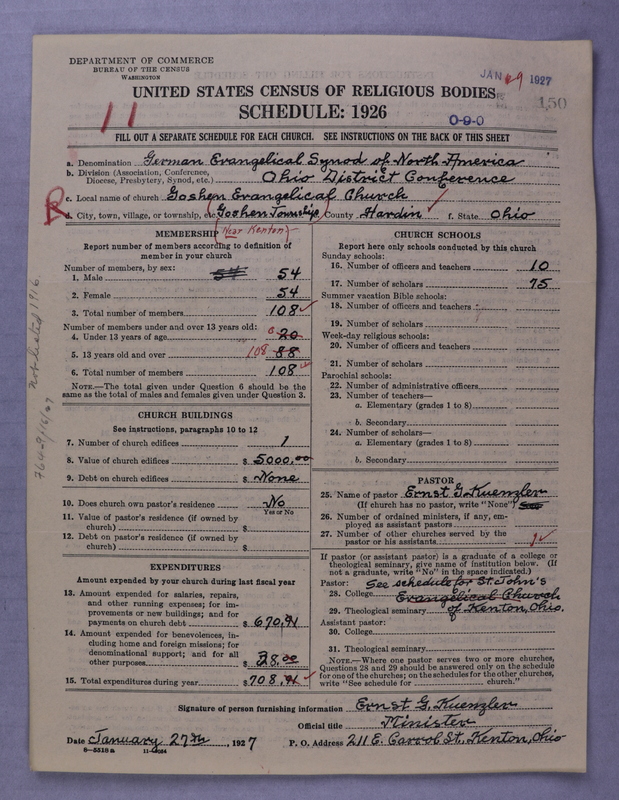 DEPARTMENT OF COMMERCE
BUREAU OF THE CENSUS
WASHINGTON
JAN 29 1927
150
11
UNITED STATES CENSUS OF RELIGIOUS BODIES
SCHEDULE: 1926
0-9-0
FILL OUT A SEPARATE SCHEDULE FOR EACH CHURCH. SEE INSTRUCTIONS ON THE BACK OF THIS SHEET
a. Denomination German Evangelical Synod of North America
b. Division (Association, Conference, Diocese, Presbytery, Synod, etc.) Ohio District Conference
R
c. Local name of church Goshen Evangelical Church
d. City, town, village, or township, etc. Goshen Township County Hardin f. State Ohio
Near Kenton
MEMBERSHIP
Report number of members according to definition of
member in your church
Number of members, by sex:
1. Male 54
2. Female 54
3. Total number of members 108
Number of members under and over 13 years old:
4. Under 13 years of age 0 20
5. 13 years old and over 108 88
6. Total number of members 108
NOTE.—The total given under Question 6 should be
same as the total of males and females given under Question 3.
CHURCH BUILDINGS
See instructions, paragraphs 10 to 12
7. Number of church edifices 1
8. Value of church edifices $ 5000.00
9. Debt on church edifices $ None
10. Does church own pastor's residence No
Yes or No
11. Value of pastor's residence (if owned by
church) $
12. Debt on pastor's residence (if owned by
church) $
EXPENDITURES
Amount expended by your church during last fiscal year
13. Amount expended for salaries, repairs,
and other running expenses; for im-
provements or new buildings; and for
payments on church debt $ 670.91
14. Amount expended for benevolences, in-
cluding home and foreign missions; for
denominational support; and for all
other purposes $ 38.00
15. Total expenditures during year $ 708.91
CHURCH SCHOOLS
Report here only schools conducted by this church
Sunday schools:
16. Number of officers and teachers 10
17. Number of scholars 75
Summer vacation Bible schools:
18. Number of officers and teachers
19. Number of scholars
Week-day religious schools:
20. Number of officers and teachers
21. Number of scholars
Parochial schools:
22. Number of administrative officers
23. Number of teachers—
a. Elementary (grades 1 to 8)
b. Secondary
24. Number of scholars—
a. Elementary (grades 1 to 8)
b. Secondary
PASTOR
25. Name of pastor Ernst G. Kuenzler
(If church has no pastor, write "None")
26. Number of ordained ministers, if any, em-
ployed as assistant pastors
27. Number of other churches served by the
pastor or his assistants 1
If pastor (or assistant pastor) is a graduate of a college or
theological seminary, give name of institution below. (If
not a graduate, write "No" in the space indicated.)
Pastor: See schedule for St John's
28. College Evangelical Church
29. Theological seminary of Kenton, Ohio.
Assistant pastor:
30. College
31. Theological seminary
NOTE.—Where one pastor serves two or more churches,
Questions 28 and 29 should be answered only on the schedule
for one of the churches; on the schedules for the other churches,
write "See schedule for church."
Signature of person furnishing information Ernst G. Kuenzler
Official title Minister
Date January 27th, 1927 P. O. Address 211 E. Carrol St., Kenton, Ohio
8—5518 a
Not listed 1916